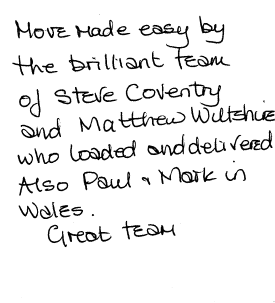 Move made easy by
the brilliant team
of Steve Coventry
and Matthew Wiltshire
who loaded and delivered
Also Paul & Mark in
Wales.
Great team